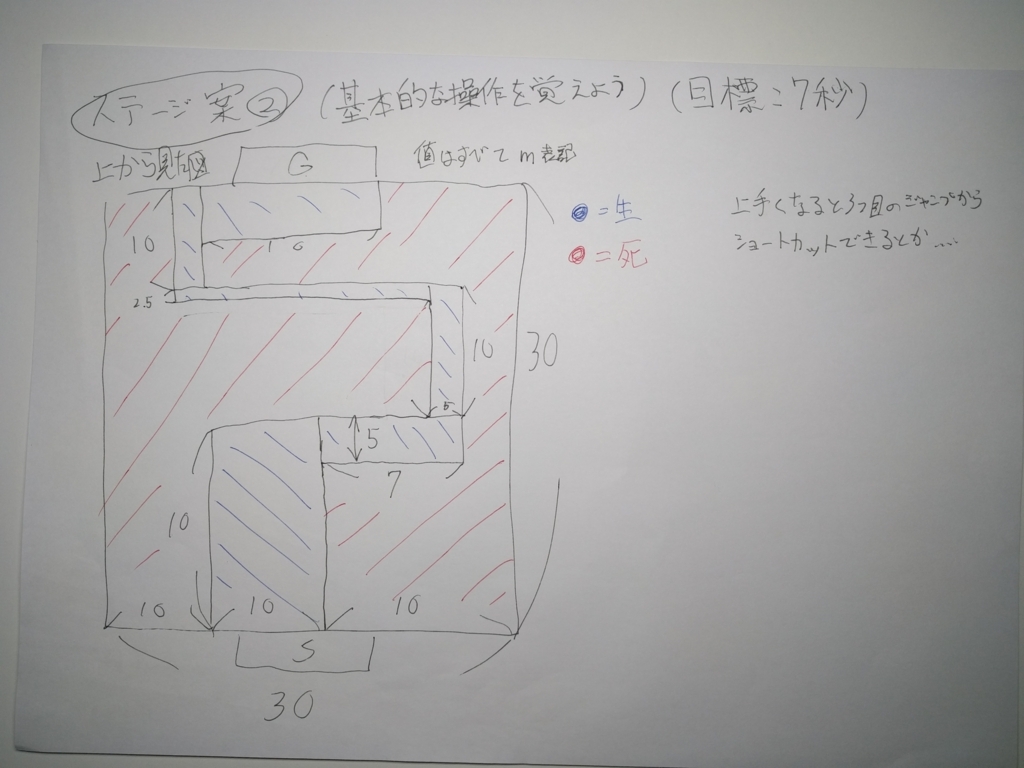 ステージ案② (基本的な操作を覚えよう) (目標:7秒)
上から見た図 G 値はすべて m 表記
=生
=死
上手くなると3つ目のジャンプから
ショートカットできるとか....
10
10
2.5
10
30
5
5
7
10
10
10
10
S
30